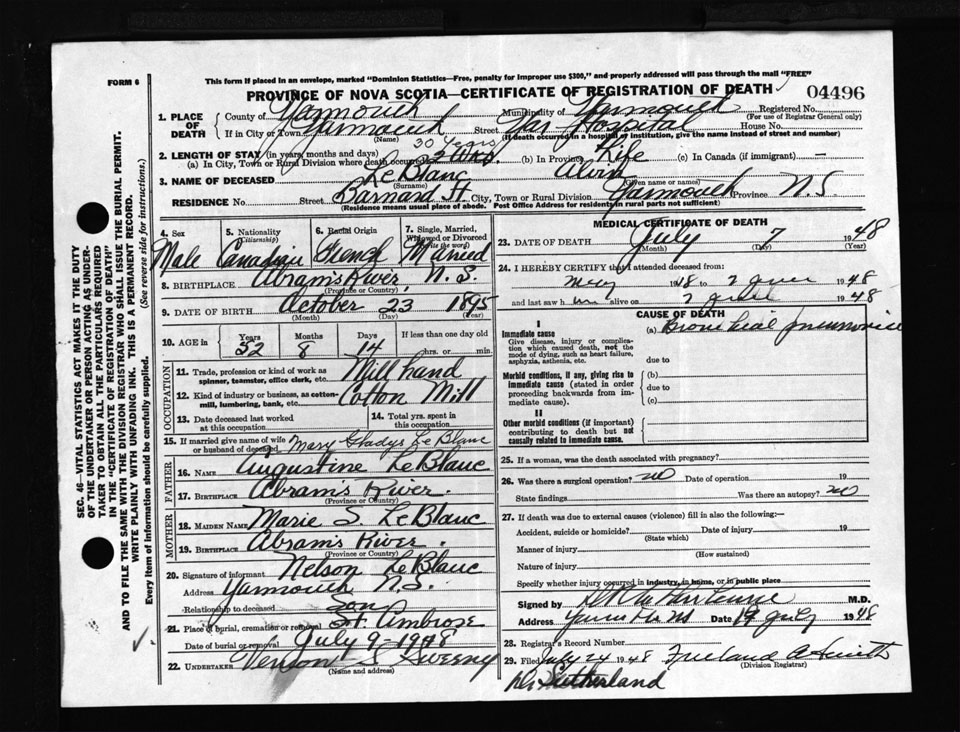 FORM 6
This form if placed in an envelope, marked "Dominion Statistics—Free, penalty for improper use $300," and properly addressed will pass through the mail "FREE"
PROVINCE OF NOVA SCOTIA—CERTIFICATE OF REGISTRATION OF DEATH
04496
1. PLACE OF DEATH
County of Yarmouth Municipality of Yarmouth Registered No.
(For use of Registrar General only)
If in City or Town Yarmouth Street Yar Hospital House No.
(Name) (If death occurred in a hospital or institution, give the name instead of street and number)
30 years
2. LENGTH OF STAY (in years, months and days)
(a) In City, Town or Rural Division where death occurred (b) In Province Life (c) In Canada (if immigrant) —
3. NAME OF DECEASED LeBlanc Alvin
(Surname) (Given name or names)
RESIDENCE No. Street Barnard St. City, Town or Rural Division Yarmouth Province N.S
(Residence means usual place of abode. Post Office Address for rural parts not sufficient)
4. Sex Male
5. Nationality (Citizenship) Canadian
6. Racial Origin French
7. Single, Married, Widowed or Divorced (Write the word) Married
8. BIRTHPLACE Abram's River, N.S.
(Province or Country)
9. DATE OF BIRTH October 23 1895
(Month) (Day) (Year)
10. AGE in Years Months Days If less than one day old
52 8 14 hrs. or min.
OCCUPATION
11. Trade, profession or kind of work as spinner, teamster, office clerk, etc. Mill hand
12. Kind of industry or business, as cotton-mill, lumbering, bank, etc. Cotton Mill
13. Date deceased last worked at this occupation
14. Total yrs. spent in this occupation
15. If married give name of wife or husband of deceased Mary Gladys Le Blanc
FATHER
16. NAME Augustine LeBlanc
17. BIRTHPLACE Abram's River.
(Province or Country)
MOTHER
18. MAIDEN NAME Marie S. LeBlanc
19. BIRTHPLACE Abram's River.
(Province or Country)
20. Signature of informant Nelson LeBlanc
Address Yarmouth N.S.
Relationship to deceased son
21. Place of burial, cremation or removal St. Ambrose
Date of burial or removal July 9-1948
22. UNDERTAKER Vernon S Sweeny
(Name and address)
MEDICAL CERTIFICATE OF DEATH
23. DATE OF DEATH July 7 1948
(Month) (Day) (Year)
24. I HEREBY CERTIFY that I attended deceased from:
May 1948 to 7 1948
and last saw him alive on 7 1948
CAUSE OF DEATH
I
Immediate cause (a) Bronchial Pneumonia
Give disease, injury or complication which caused death, not the mode of dying, such as heart failure, asphyxia, asthenia, etc.
due to
Morbid conditions, if any, giving rise to immediate cause (stated in order proceeding backwards from immediate cause).
(b)
due to
(c)
II
Other morbid conditions (if important) contributing to death but not causally related to immediate cause.
25. If a woman, was the death associated with pregnancy?
26. Was there a surgical operation? no Date of operation 19
State findings Was there an autopsy? no
27. If death was due to external causes (violence) fill in also the following:—
Accident, suicide or homicide? Date of injury 19
(State which)
Manner of injury
(How sustained)
Nature of injury
Specify whether injury occurred in industry, in home, or in public place
Signed by M.D.
Address Date 19 July 1948
28. Registrar's Record Number
29. Filed July 24 1948 Freeland A Smith
(Division Registrar)
Sutherland
SEC. 46—VITAL STATISTICS ACT MAKES IT THE DUTY
OF THE UNDERTAKER OR PERSON ACTING AS UNDER-
TAKER TO OBTAIN ALL THE PARTICULARS REQUIRED
IN THE "CERTIFICATE OF REGISTRATION OF DEATH"
AND TO FILE THE SAME WITH THE DIVISION REGISTRAR WHO SHALL ISSUE THE BURIAL PERMIT.
WRITE PLAINLY WITH UNFADING INK. THIS IS A PERMANENT RECORD.
Every item of Information should be carefully supplied. (See reverse side for instructions.)